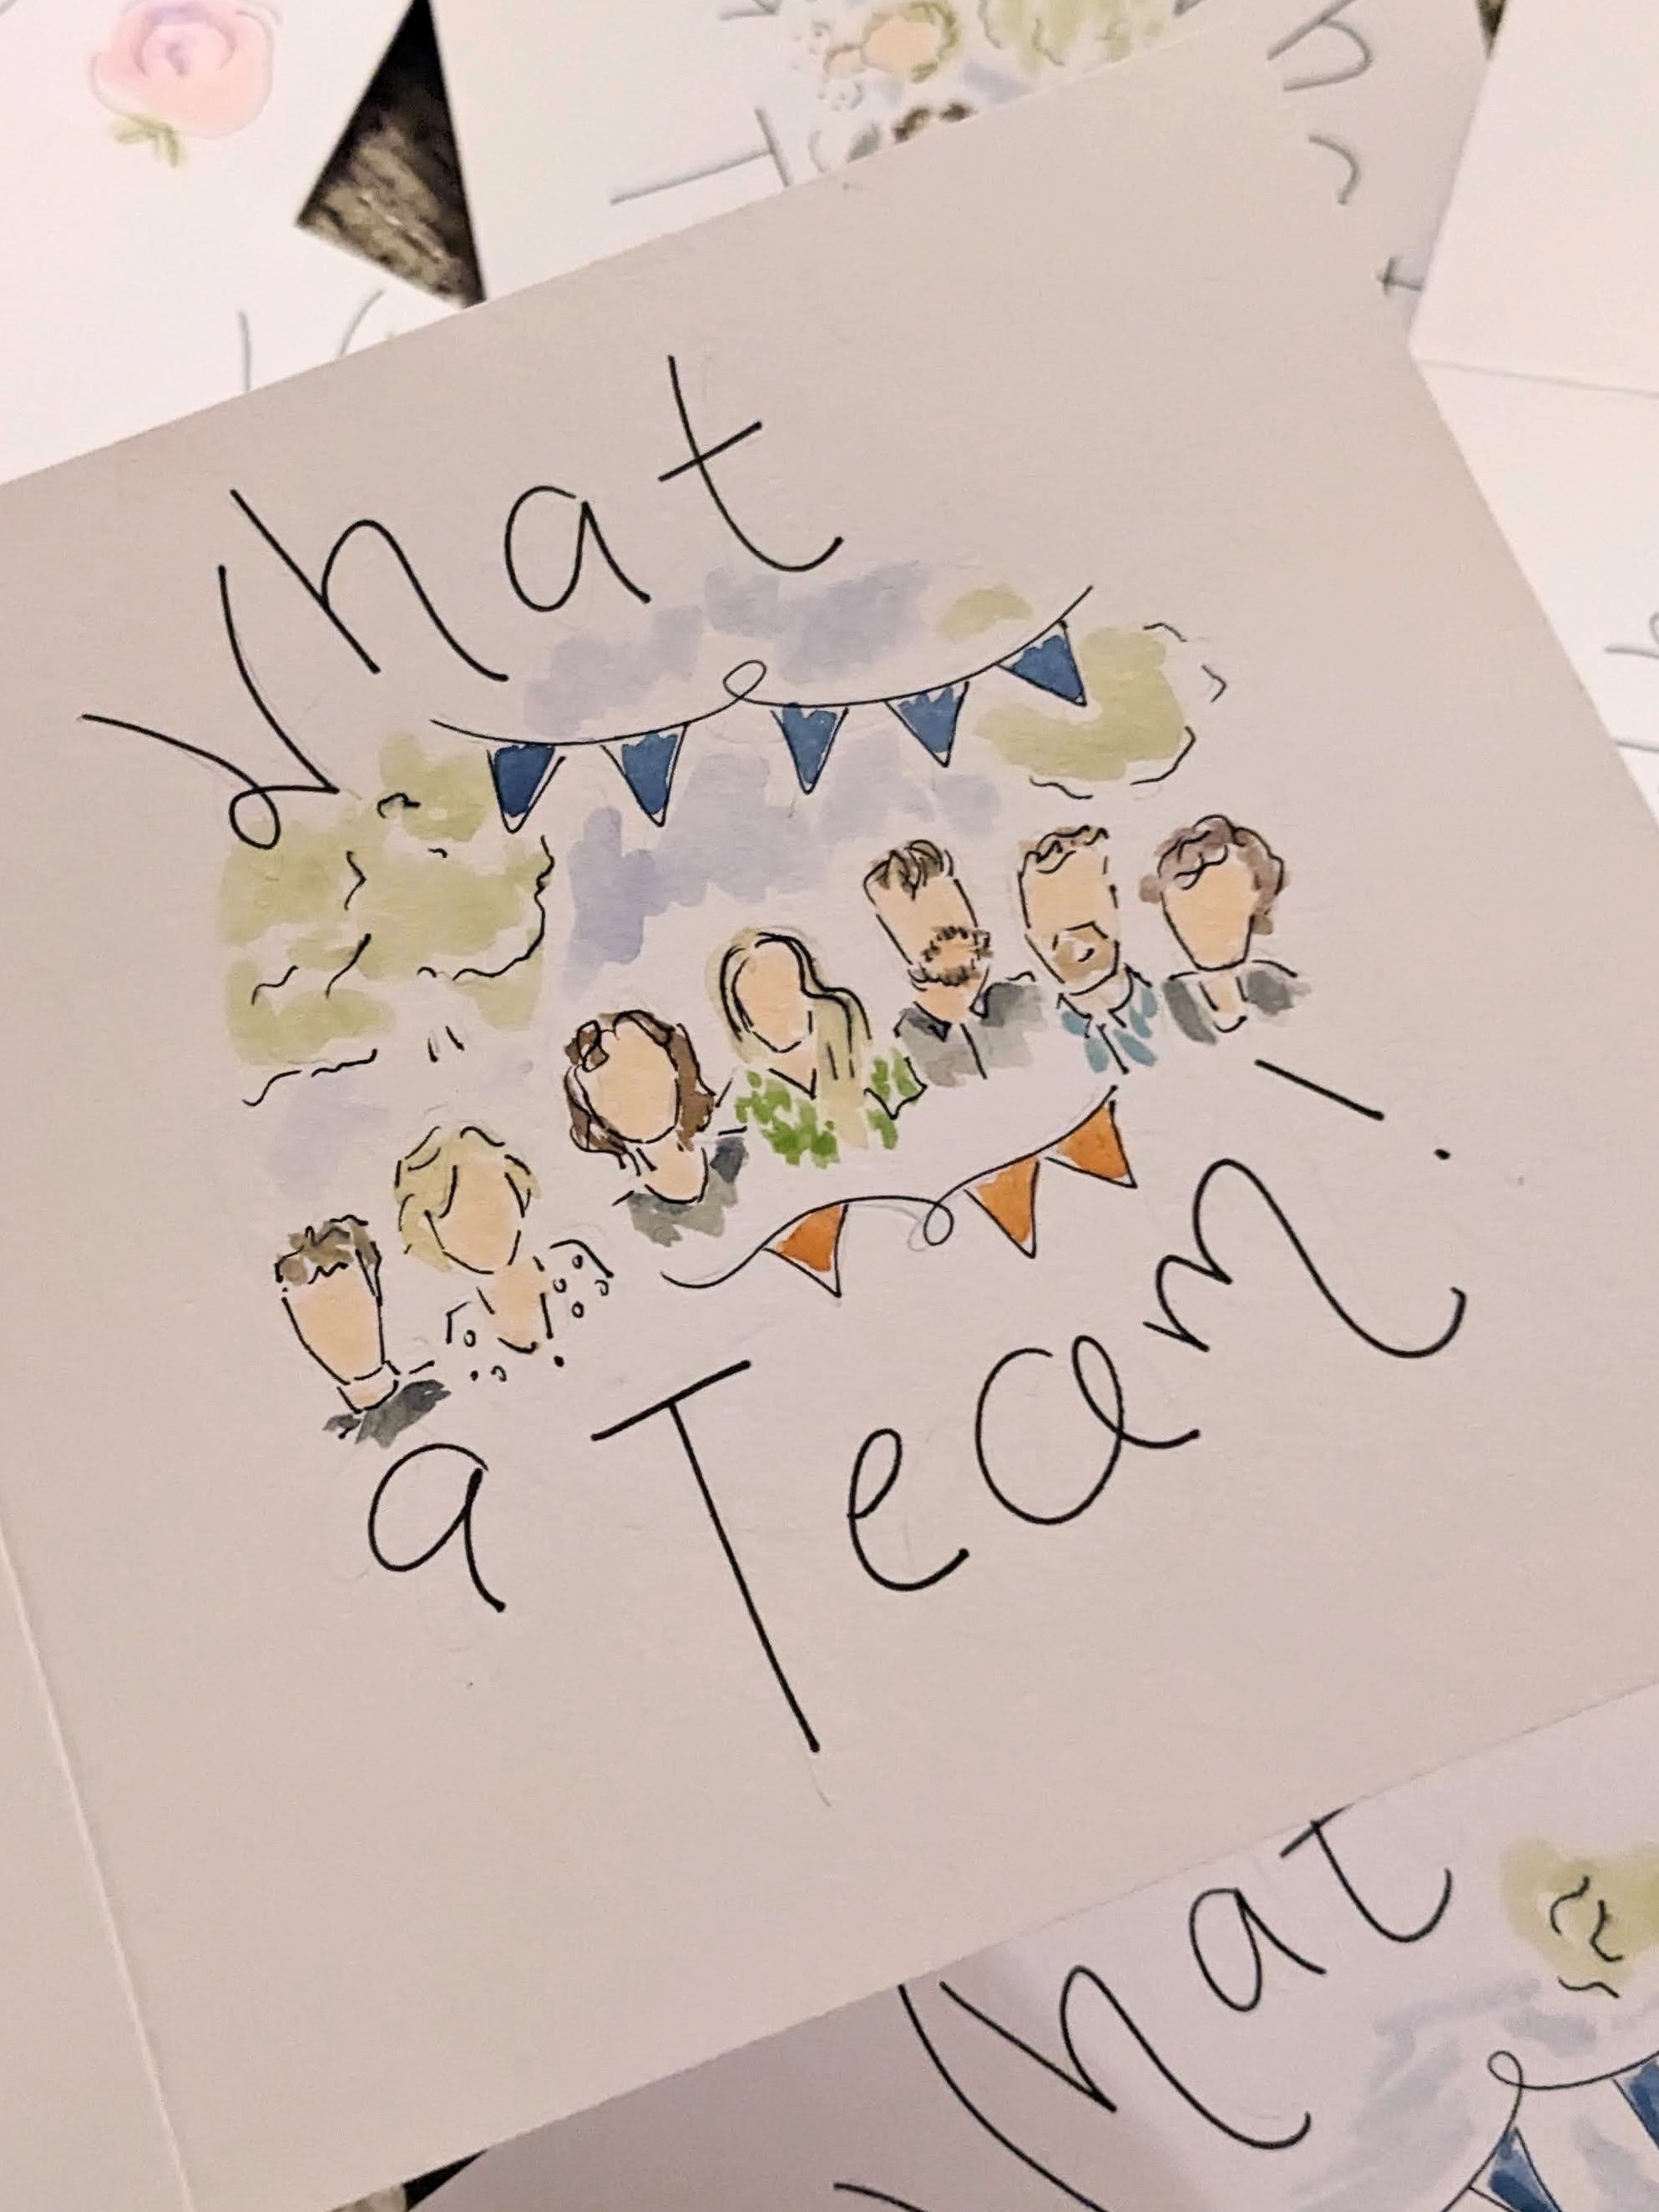 What
a Team!
What